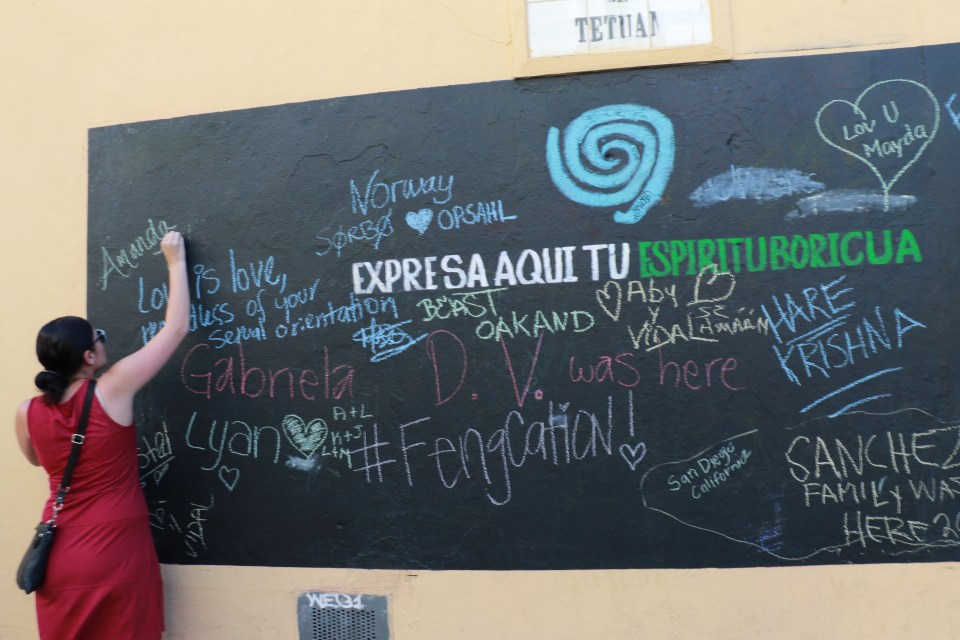 TETUAN
Lov U
Mayda
Norway
SØRBØ OPSAHL
EXPRESA AQUI TU ESPIRITU BORICUA
Amanda
Love is love,
regardless of your
sexual orientation
BEAST
OAKLAND
Aby
y
VIDAL
HARE
KRISHNA
Gabriela D.V. was here
Lyan
A+L
K+J
L+M
#Fengcation!
San Diego
California
SANCHEZ
FAMILY WAS
HERE 20
VIDAL
WEQ1